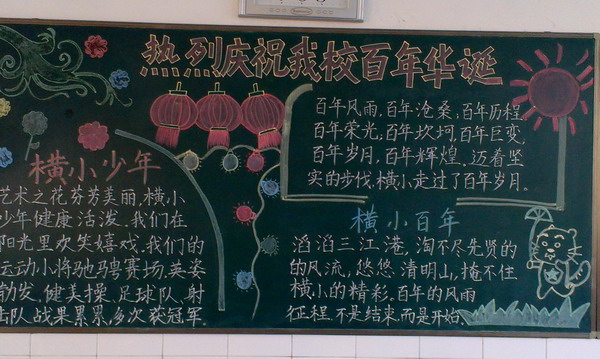 热烈庆祝我校百年华诞
横小少年
艺术之花芬芳美丽.横小
少年健康活泼.我们在
阳光里欢笑嬉戏.我们的
运动小将驰骋赛场.英姿
勃发.健美操、足球队、射
击队.战果累累,多次获冠军.
百年风雨,百年沧桑,百年历程
百年荣光,百年坎坷,百年巨变,
百年岁月,百年辉煌.迈着坚
实的步伐.横小走过了百年岁月.
横小百年
滔滔三江港,淘不尽先贤的
的风流,悠悠清明山,掩不住
横小的精彩.百年的风雨
征程.不是结束.而是开始.